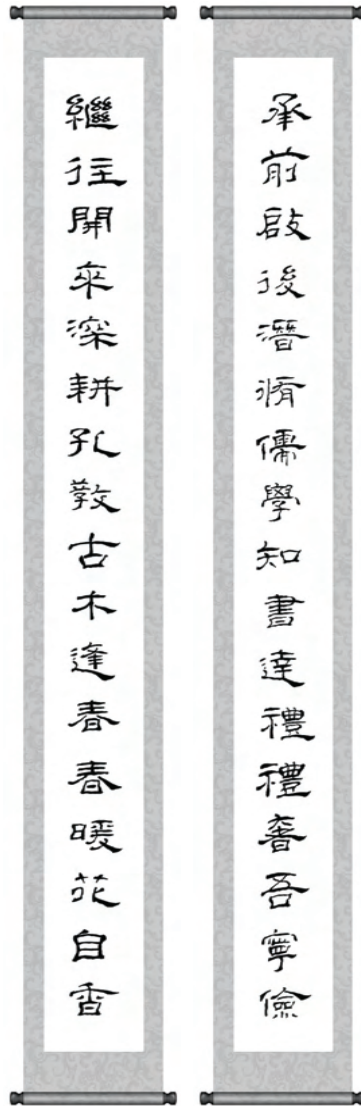 承前啟後潛脩儒學知書達禮禮奢吾寧儉
繼往開來深耕孔教古木逢春春暖花自香